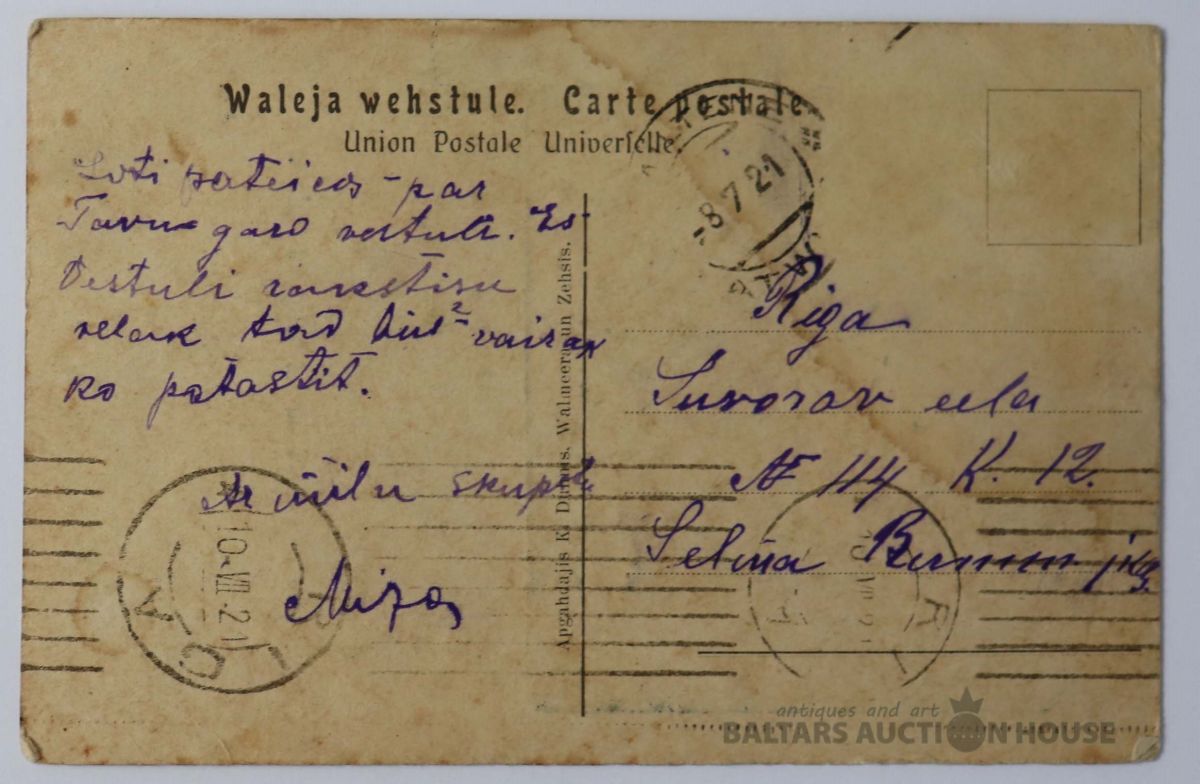 Waleja wehstule. Carte postale.
Union Postale Universelle.
Loti pateicos par
Tavu garo vestuli. Es
Vestuli rakstisu
velak tad būs vairak
ko pastastit.
Ar milu skupstu
Mirza
Apgahdajis K. Duhnis. Walmeera un Zehsis.
-8 7 21
Riga
Suvorav eela
№ 114 K. 12.
Selma
10.VII 21
RIGA
antiques and art
BALTARS AUCTION HOUSE